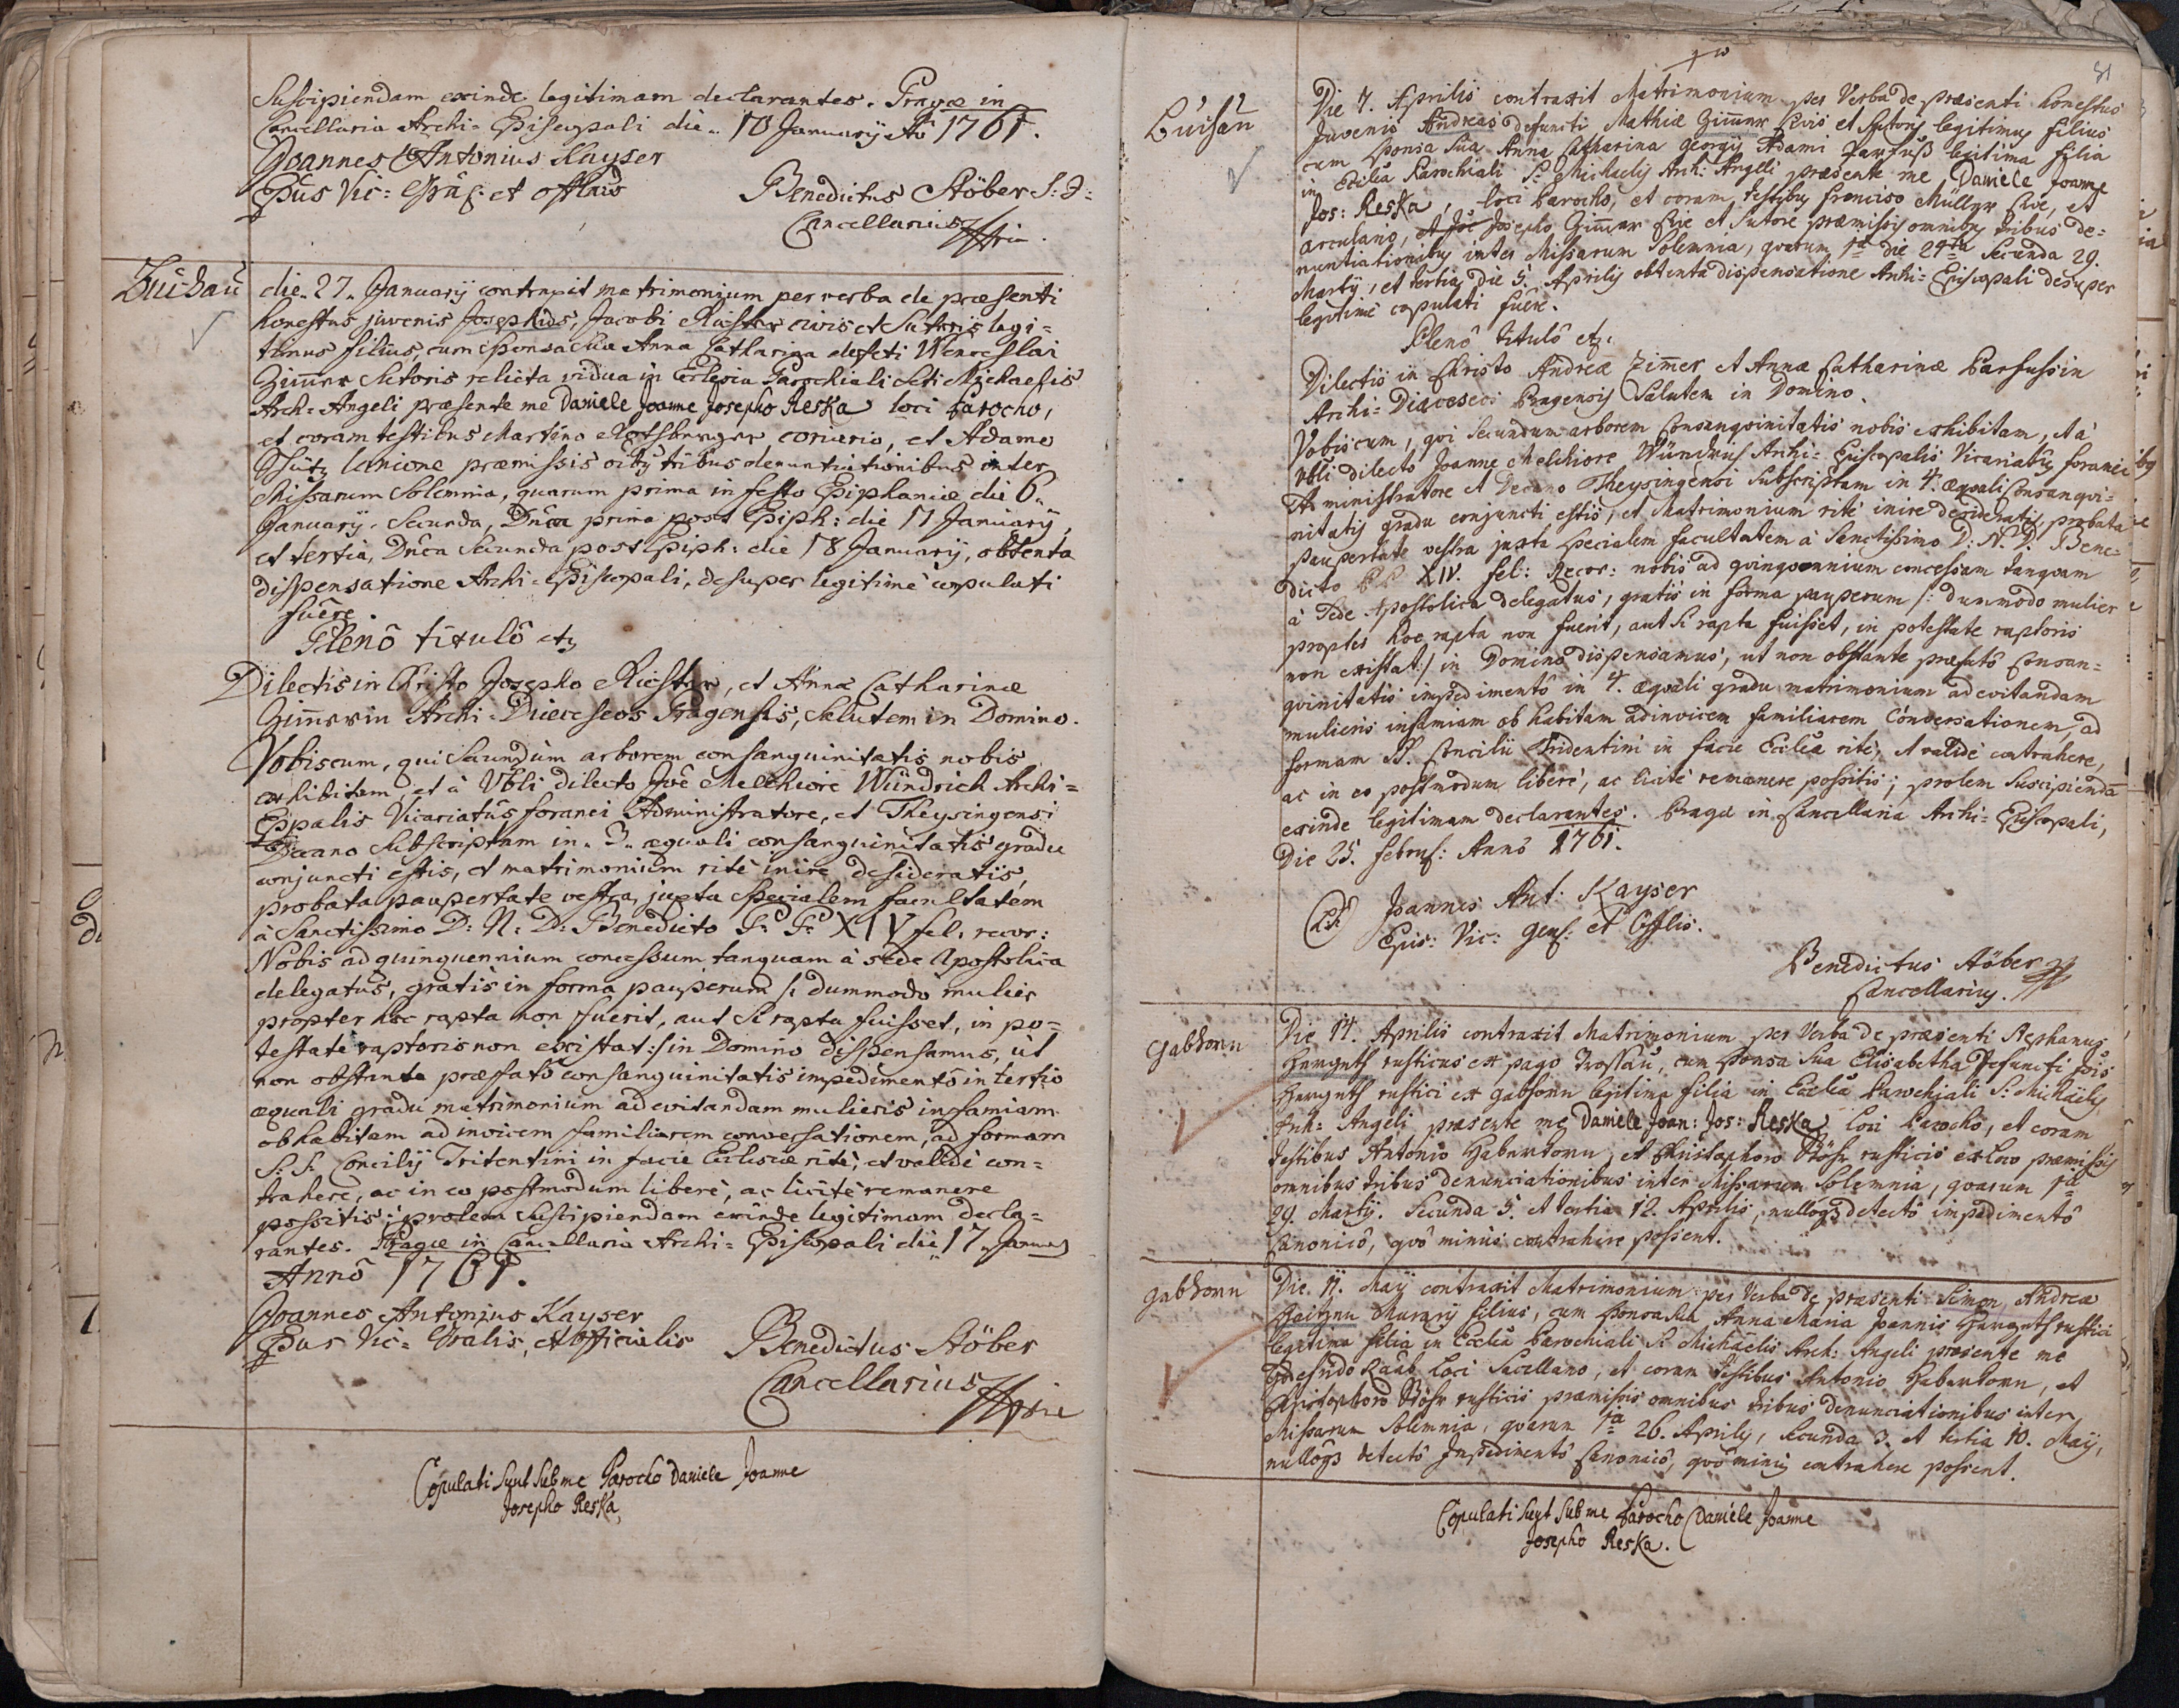 Suscipiendam exinde legitimam declarantes. Pragæ in
Cancellaria Archi-Episcopali die 10 January Aô 1761.
Joannes Antonius Kayser
Eppus Vic: Gñlis et Offlis
Benedictus Stöber S:J:
Cancellarius
Buchau
die 27 January contraxit matrimonium per verba de præsenti
honestus juvenis Josephus, Jacobi Richter civis et Sutoris legi=
timus filius, cum sponsa sua Anna Catharina defcti Wenceslai
Zimmer Sutoris relicta vidua in Ecclesia Parochiali Scti Michaelis
Arch-Angeli præsente me Daniele Joanne Josepho Reska loci Parocho,
et coram testibus Martino coriario, et Adamo
Schütz lanione præmissis oibg tribus denuntiationibus inter
Missarum Solemnia, quarum prima in festo Epiphaniæ die 6.
January. Secunda, Dñca prima post Epiph: die 11 January,
et tertia, Dñca Secunda post Epiph: die 18 January, obtenta
dispensatione Archi-Episcopali, desuper legitimè copulati
fuêre.
Plenô titulô etz
Dilectis in Christo Josepho Richter, et Annæ Catharinæ
Zimmerin Archi-Dieceseos Pragensis, Salutem in Domino.
Vobiscum, qui Secundum arborem consanguinitatis nobis
exhibitam et à Vbli dilecto Joê Melchiore Wündrich Archi=
Eppalis Vicariatûs foranei Administratore, et Theysingensi
Decano Subscriptam in 3 æquali consanguinitatis gradu
conjuncti estis, et matrimonium ritè inire desideratis,
probata paupertate vestra, juxta Specialem facultatem
à Sanctissimo D: N: D: Benedicto P: P: XIV fel: recor:
Nobis ad quinquennium concessum tanquam à Sede Apostolica
delegatus, gratis in forma pauperum /: dummodo mulier
propter hoc rapta non fuerit, aut si rapta fuisset, in po=
testate raptoris non existat :/ in Domino dispensamus, ut
non obstante præfatô consanguinitatis impedimentô in tertio
æquali gradu matrimonium ad evitandam mulieris infamiam
ob habitam ad invicem familiarem conversationem, ad formam
S: S: Concilij Tritentini in facie Ecclesiæ ritè, et validè con=
trahere, ac in eo postmodum liberè, ac licitè remanere
possitis; prolem Suscipiendam exinde legitimam decla=
rantes. Pragæ in Cancellaria Archi-Episcopali die 17 January
Annô 1761.
Joannes Antonius Kayser
Eppus Vic: Gralis, et Officialis
Benedictus Stöber
Cancellarius
Copulati sunt sub me Parocho Daniele Joanne
Josepho Reska,
81
Buchau
Die 7. Aprilis contraxit Matrimonium per Verba de præsenti honestus
Juvenis Andreas defuncti Mathiæ Zimmer Civis et Sutoris legitimus filius
cum Sponsa Sua Anna Catharina Georgij Adami Parfuß legitima filia
in Ecclia Parochiali S: Michaelis Arch: Angeli præsente me Daniele Joanne
Jos: Reska, loci Parocho, et coram testibus Francisco Müller Cive, et
arculario, et Joê Josepho Zimmer Cive et Sutore præmissis omnibg tribus de=
nuntiationibus inter Missarum Solemnia, quarum 1ma die 24ta Secunda 29.
Martij, et tertia die 5. Aprilis obtenta dispensatione Archi-Episcopali desuper
legitimè copulati fuêre.
Plenô titulô etz.
Dilectis in Christo Andreæ Zimmer et Annæ Catharinæ Parfussin
Archi-Dioeceseos Pragensis Salutem in Domino.
Vobiscum, qui Secundum arborem consanguinitatis nobis exhibitam, et à
Vbli dilecto Joanne Melchiore Archi-Episcopalis Vicariatûs foranei
Administratore et Decano Theysingensi Subscriptam in 4. æquali Consangui=
nitatis gradu conjuncti estis, et Matrimonium ritè inire desideratis, probata
paupertate vestra juxta specialem facultatem à Sanctissimo D: N: D: Bene=
dicto PP XIV. fel: Recor: nobis ad quinquennium concessam tanquam
à Sede Apostolica delegatus, gratis in forma pauperum /: dummodo mulier
propter hoc rapta non fuerit, aut si rapta fuisset, in potestate raptoris
non existat :/ in Domino dispensamus, ut non obstante præfatô Consan=
guinitatis impedimentô in 4. æquali gradu matrimonium ad evitandam
mulieris infamiam ob habitam adinvicem familiarem Conversationem, ad
formam SS. Concilii Tridentini in facie Eccliæ ritè, et validè contrahere,
ac in eo postmodum liberè, ac licitè remanere possitis; prolem Suscipiendã
exinde legitimam declarantes. Pragæ in Cancellaria Archi-Episcopali,
Die 25. febru: Annô 1761.
Joannes Ant: Kayser
Epis: Vic: Gens: et Offlis.
Benedictus Stöber
Cancellarius.
Gabhorn
Die 14. Aprilis contraxit Matrimonium per Verba de præsenti Stephanus
rusticus ex pago Trossau, cum Sponsa Sua Elisabetha Defuncti
rustici ex Gabhorn legitima filia in Ecclia Parochiali S: Michaëlis
Arch-Angeli præsente me Daniele Joan: Jos: Reska loci Parocho, et coram
testibus Antonio Haberkorn, et Christophoro Stöhr rusticis ex loco præmissis
omnibus tribus denunciationibus inter Missarum Solemnia, quarum 1ma
29. Martij. Secunda 5. et tertia 12. Aprilis, nullôqz detectô impedimentô
Canonicô, quô minùs contrahere possent.
Gabhorn
Die 11. Maij contraxit Matrimonium per Verba de præsenti Simon, Andreæ
Murarij filius, cum Sponsa Sua Anna Maria Joannis rustici
legitima filia in Ecclia Parochiali S: Michaëlis Arch: Angeli præsente me
Raab loci Sacellano, et coram testibus Antonio Haberkorn, et
Christophoro Stöhr rusticis præmissis omnibus tribus denunciationibus inter
Missarum Solemnia, quarum 1ma 26. Aprilis, Secunda 3. et tertia 10. Maij,
nullôqz detectô Impedimentô Canonicô, quô minùs contrahere possent.
Copulati sunt sub me Parocho Daniele Joanne
Josepho Reska.